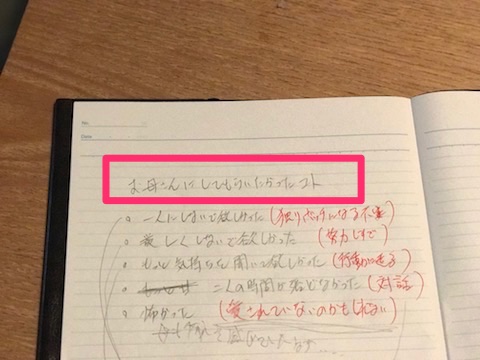 No.
Date
お母さんにしてもらいたかったコト
・一人にしないで欲しかった (独りぼっちになる不安)
・厳しくしないで欲しかった (努力しすぎ)
・もっと気持ちを聞いて欲しかった (行動が
・二人の時間が
なかった (対話)
・怖かった (愛されていないのかもしれない)